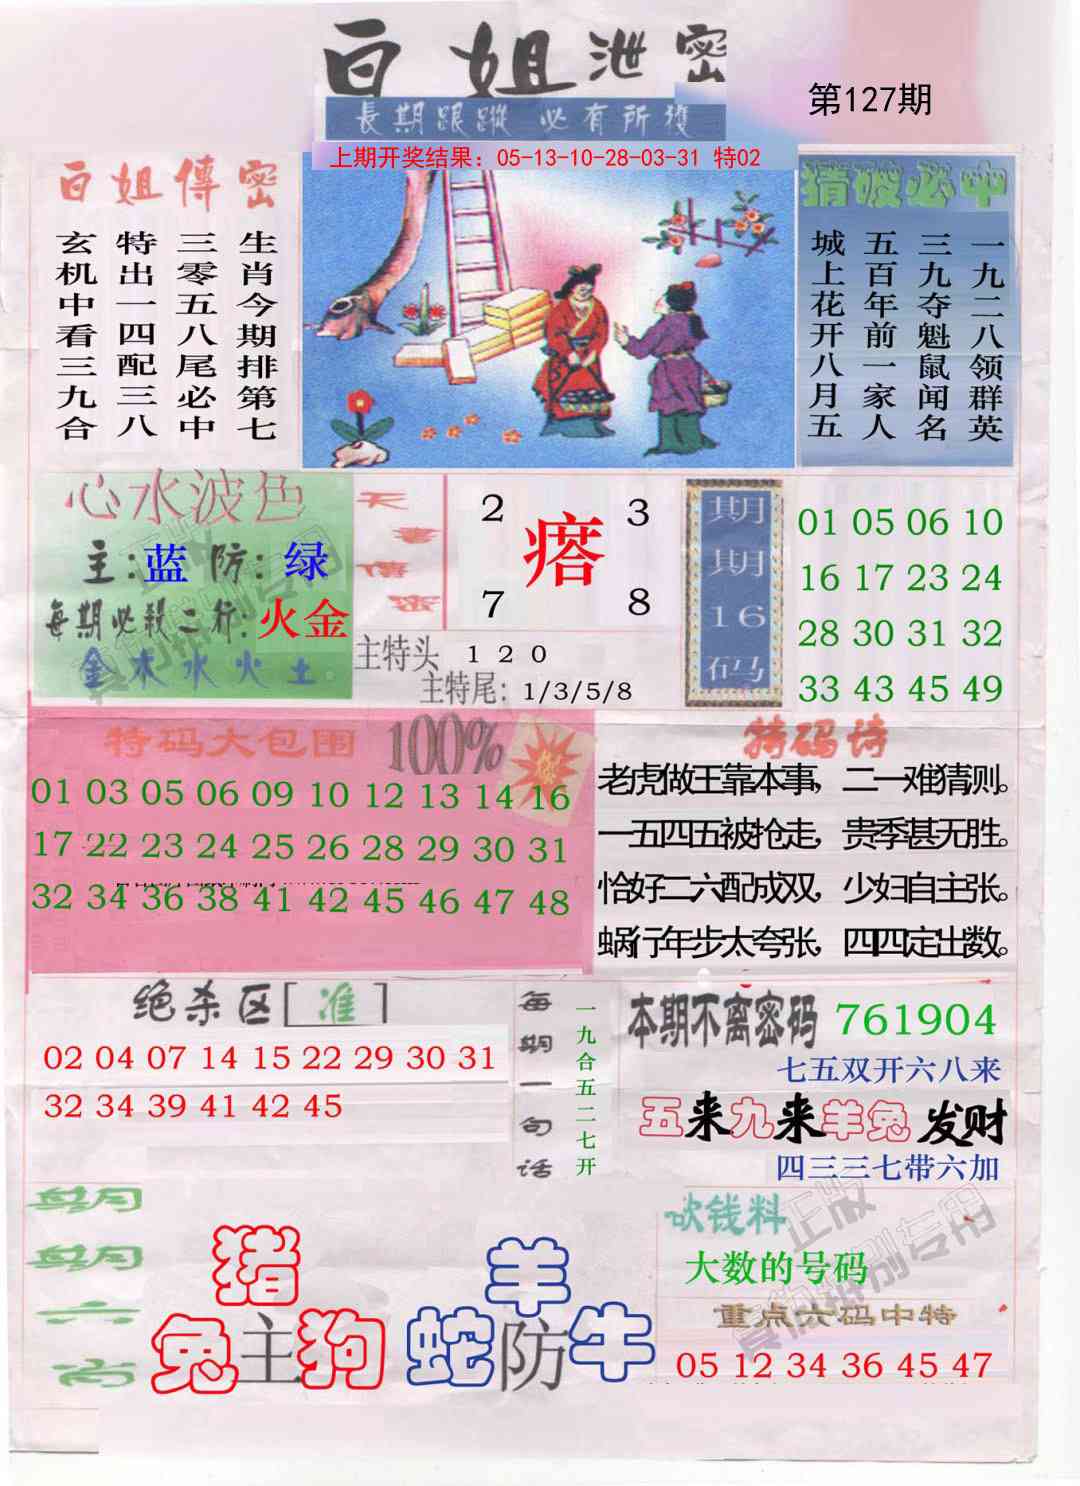 白姐泄密
第127期
長期跟蹤 必有所獲
上期开奖结果：05-13-10-28-03-31 特02
白姐傳密
生肖今期排第七
三零五八尾必中
特出一四配三八
玄机中看三九合
猜破必中
一九二八领群英
三九夺魁鼠闻名
五百年前一家人
城上花开八月五
心水波色
主:蓝 防:绿
每期必殺二行:火金
金木水火土
天書傳密
2 3
瘩
7 8
主特头 1 2 0
主特尾: 1/3/5/8
期期16码
01 05 06 10
16 17 23 24
28 30 31 32
33 43 45 49
特码大包围 100%
01 03 05 06 09 10 12 13 14 16
17 22 23 24 25 26 28 29 30 31
32 34 36 38 41 42 45 46 47 48
特码诗
老虎做王靠本事，二一难猜则。
一五四五被抢走，贵季甚无胜。
恰好二六配成双，少妇自主张。
蜗行年步太夸张，四四定出数。
绝杀区[准]
02 04 07 14 15 22 29 30 31
32 34 39 41 42 45
每期一句话
一九合五二七开
本期不离密码 761904
七五双开六八来
五来九来羊兔 发财
四三三七带六加
每期六肖
猪
兔主狗
羊
蛇防牛
砍钱料
大数的号码
重点六码中特
05 12 34 36 45 47